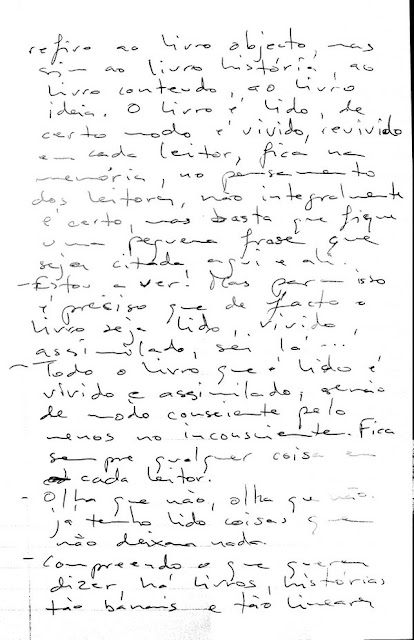 refiro ao livro objecto, mas
sim ao livro história, ao
livro conteúdo, ao livro
ideia. O livro é lido, de
certo modo é vivido, revivido
em cada leitor, fica na
memória, no pensamento
dos leitores, não integralmente
é certo, mas basta que fique
uma pequena frase que
seja citada aqui e ali.
- Estou a ver! Mas para isso
é preciso que de facto o
livro seja lido, vivido,
assimilado, sei lá...
- Todo o livro que é lido é
vivido e assimilado, senão
de modo consciente pelo
menos no inconsciente. Fica
sempre qualquer coisa em
cada leitor.
- Olha que não, olha que não.
já tenho lido coisas que
não deixam nada.
- Compreendo o que queres
dizer, há livros, histórias
tão banais e tão lineares